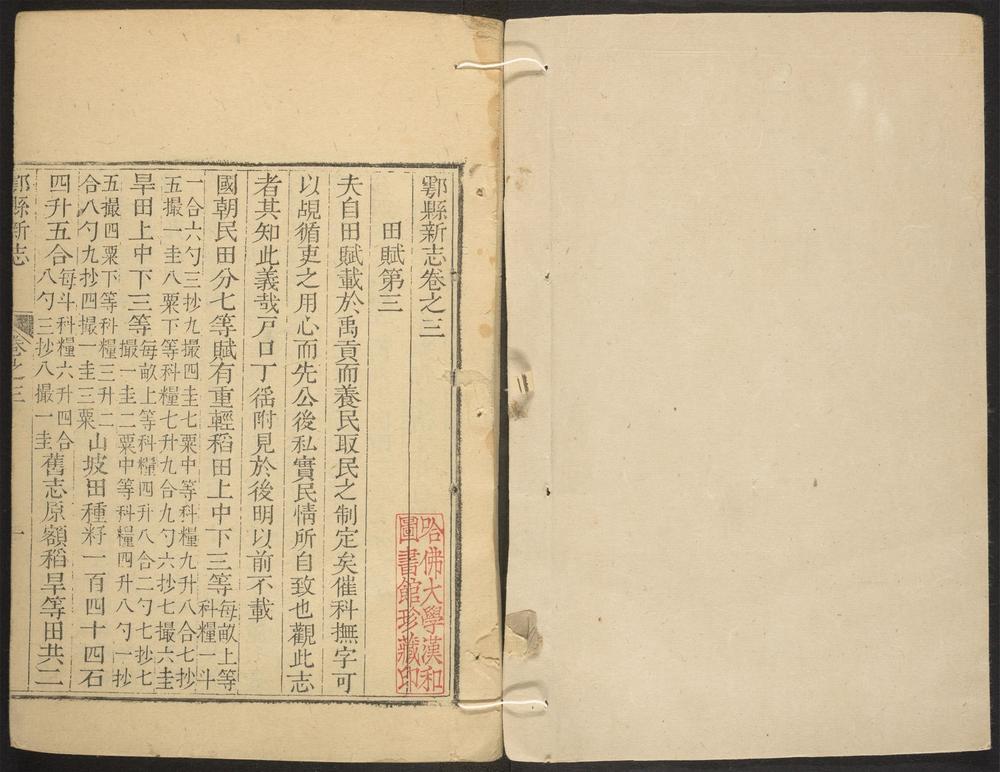 鄠縣新志卷之三
哈佛大學漢和
圖書館珍藏印
田賦第三
夫自田賦載於禹貢而養民取民之制定矣催科撫字可
以覘循吏之用心而先公後私實民情所自致也觀此志
者其知此義哉戸口丁徭附見於後明以前不載
國朝民田分七等賦有重輕稻田上中下三等每畝上等科糧一斗
一合六勺三抄九撮四圭七粟中等科糧九升八合七抄
五撮一圭八粟下等科糧七升九合九勺六抄七撮六圭
旱田上中下三等每畝上等科糧四升八合二勺七抄七撮一圭二粟中等科糧四升八勺一抄
五撮四粟下等科糧三升二合八勺九抄四撮一圭三粟山坡田種籽一百四十四石
四升五合每斗科糧六升四合八勺三抄八撮一圭舊志原額稻旱等田共三
鄠縣新志 卷之三 一